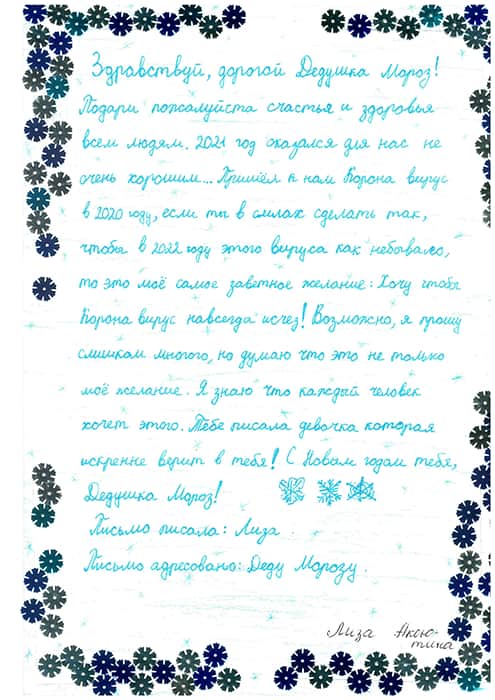 Здравствуй, дорогой Дедушка Мороз!
Подари пожалуйста счастья и здоровья
всем людям. 2021 год оказался для нас не
очень хорошим... Пришёл к нам Корона вирус
в 2020 году, если ты в силах сделать так,
чтобы в 2022 году этого вируса как небывало,
то это моё самое заветное желание: Хочу чтобы
Корона вирус навсегда исчез! Возможно, я прошу
слишком многого, но думаю что это не только
моё желание. Я знаю что каждый человек
хочет этого. Тебе писала девочка которая
искренне верит в тебя! С Новым годом тебя,
Дедушка Мороз!
Письмо писала: Лиза.
Письмо адресовано: Деду Морозу.
Лиза Аксю-
тина